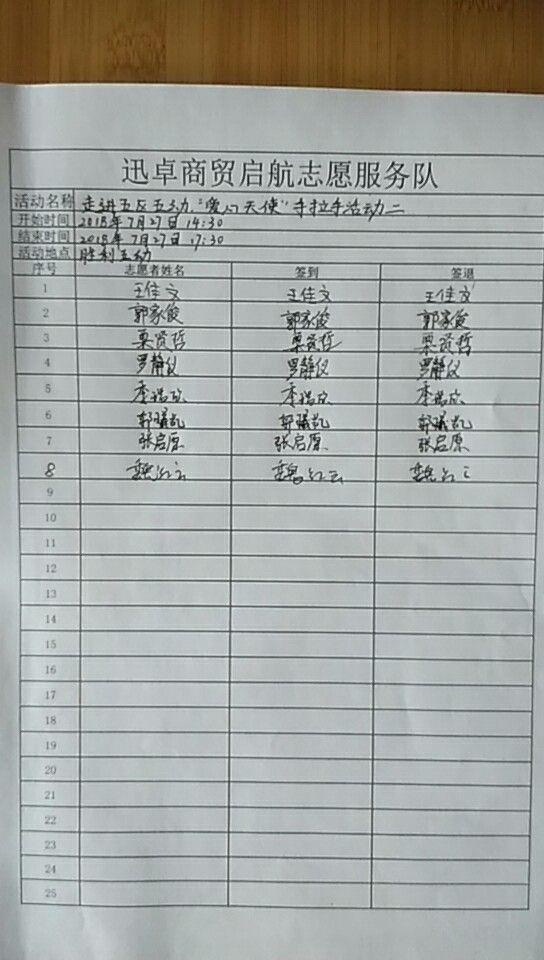 迅卓商贸启航志愿服务队
活动名称 走进五区五幼"爱心天使"手拉手活动二
开始时间 2018年7月27日 14:30
结束时间 2018年7月27日 17:30
活动地点 胜利五幼
序号 志愿者姓名 签到 签退
1 王佳文 王佳文 王佳文
2 郭家俊 郭家俊 郭家俊
3 栗贤哲 栗贤哲 栗贤哲
4 罗静仪 罗静仪 罗静仪
5 李瑞欣 李瑞欣 李瑞欣
6 郭曦凯 郭曦凯 郭曦凯
7 张启原 张启原 张启原
8 魏红云 魏红云 魏红云
9
10
11
12
13
14
15
16
17
18
19
20
21
22
23
24
25